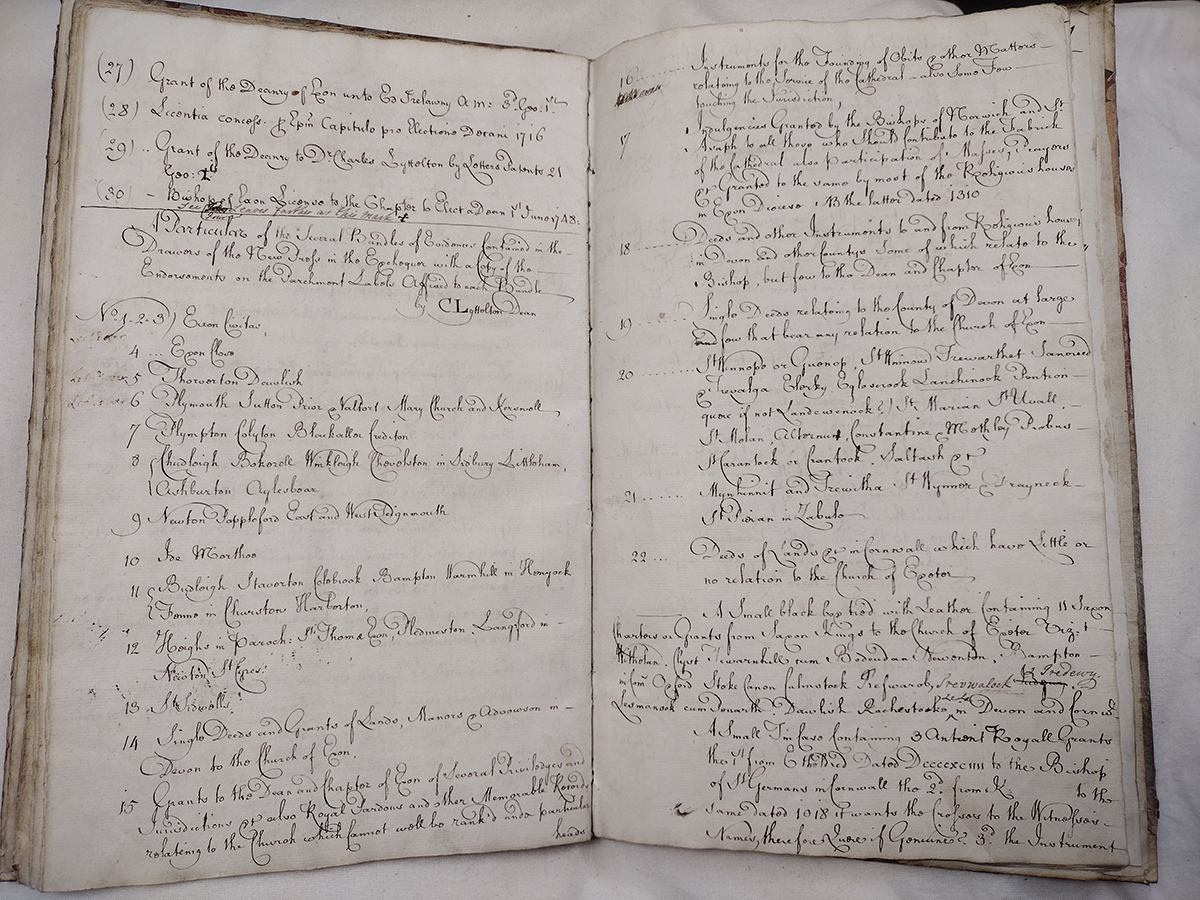 (27) Grant of the Deanry of Exon unto Ed Trelawny A m: 3d Geo: 1st
(28) Licentia concess. p Epm Capitulo pro Electione Decani 1716
(29) .. Grant of the Deanry to Dr Charles Lyttelton by Letters Patents 21
Geo:
(30) - Bishop of Exon License to the Chapter to Elect a Dean 1st June 1748:
See leaves farther as this mark
A Particular of the Several Bundles of Evidences Contained in the
Drawers of the New Press in the Exchequer with a Copy of the
Endorsments on the Parchment Labels Affixed to each Bundle
by CLyttelton Dean
No. 1-2-3) Exon Civitas,
4 ... Exon
5 Thorverton Dawlish
6 Plymouth Sutton Prior Valtort Mary Church and Kerswell
7 Plympton Colyton Blackallor Crediton
8 Chudleigh Bokerell Winkleigh Chevelston in Sidbury Littleham,
Ashburton Aylesboar
9 Newton Poppleford East and West Teignmouth
10 Ide Morthoo
11 Budleigh Staverton Colebrook Bampton Warmhill in Henyock
Fenne in Churston Harberton,
12 Heighs in Paroch: St Thomæ Exon, Pledmeston, Langford in
Newton St Cyres
13 St Sidwells
14 Single Deeds and Grants of Lands, Manors & Advowson in
Devon to the Church of Exon,
15 Grants to the Dean and Chapter of Exon of Several Priviledges and
Jurisdictions &c also Royal Pardons and other Memorable Records
relating to the Church which cannot well be rank'd under particular
heads
16 Instruments for the Founding of Obits & other Matters
relating to the Service of the Cathedral - also Some Few
touching the Jurisdiction,
17 Indulgencies Granted by the Bishops of Norwich and St
Asaph to all those who Should Contribute to the Fabrick
of the Cathedral also participation of Masses, prayers
&c Granted to the same by most of the Religious houses
in Exon Diocese NB the latter dated 1310
18 Deeds and other Instruments to and from Religious houses
in Devon and other Countys Some of which relate to the
Bishop, but few to the Dean and Chapter of Exon
19 Single Deeds relating to the County of Devon at large
and few that bear any relation to the Church of Exon
20 St Wennopo or Guenop, St Trewarthet Sancreed
& Trevalga Eglescrook Landinook Pention
quere if not Landewenack?) St Marian St Uvall
St Melan, Alternut, Constantine & Mothley Probus
St Carantock or Crantock, Saltash &c
21 Mynhinnit and Trewitha St Wynner & Trayneck
St Pieran in Zabulo
22 ... Deeds of Lands &c in Cornwall which have Little or
no relation to the Church of Exeter
A Small black box tied with Leather Containing 11 Saxon
Charters or Grants from Saxon Kings to the Church of Exeter Viz:t
Clyst Tiwarnhile cum Bodeudan Newenton, Bampton
in Com Oxford Stoke Canon Culmstock Treswalock Tredewy,
Lesmanock cum Dawlish in Devon and Cornw.
A Small Tin Case Containing 3 Antient Royall Grants
the 1st from Ethelred Dated Dccccxciiii to the Bishop
of St Germans in Cornwall the 2d. from K. to the
same dated 1018 it wants the Crosses to the Witnesses
Names, therefore Quere if Genuine? 3d. the Instrument